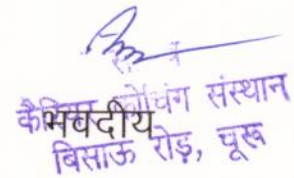 कोचिंग संस्थान
भवदीय
बिसाऊ रोड़, चूरू